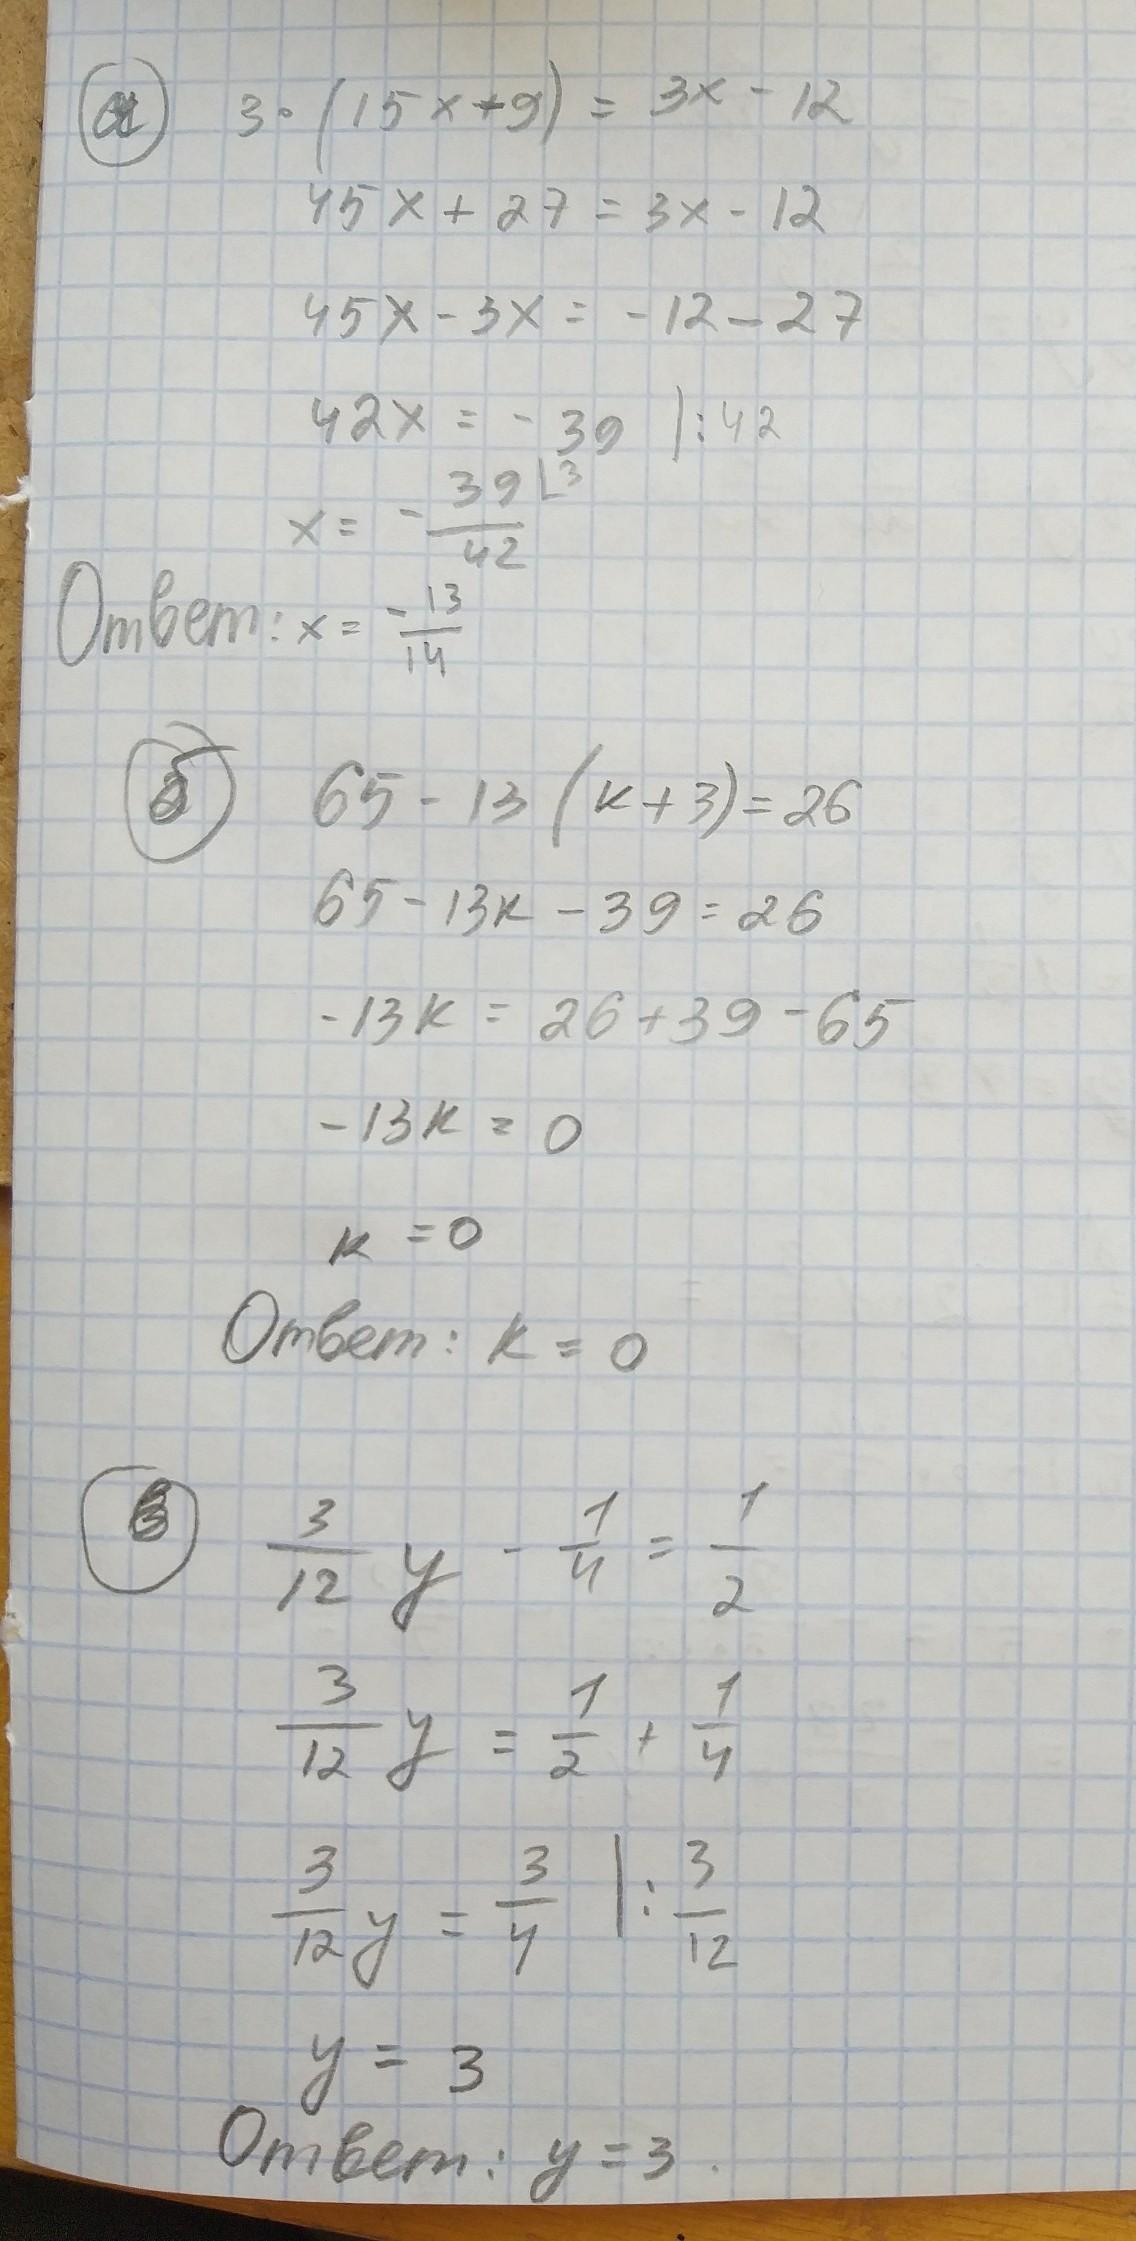 а) 3·(15x+9) = 3x - 12
45x + 27 = 3x - 12
45x - 3x = -12 - 27
42x = -39 |:42
x = -39/42 ⌊3
Ответ: x = -13/14
б) 65 - 13(к+3) = 26
65 - 13к - 39 = 26
-13к = 26 + 39 - 65
-13к = 0
к = 0
Ответ: к = 0
в) 3/12 y - 1/4 = 1/2
3/12 y = 1/2 + 1/4
3/12 y = 3/4 |: 3/12
y = 3
Ответ: y = 3.